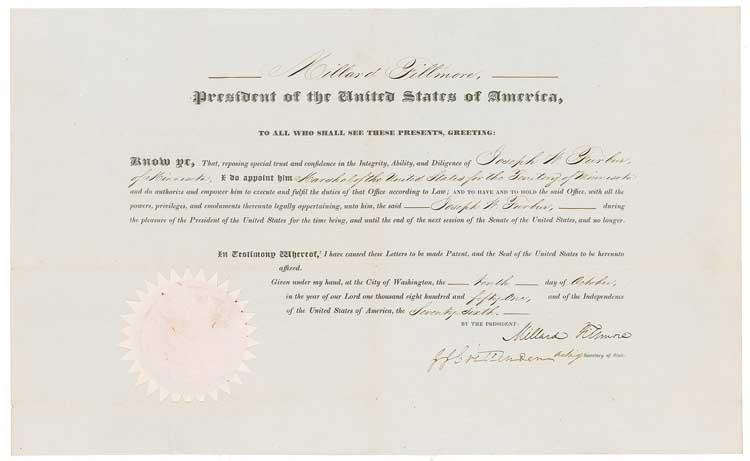 Millard Fillmore,
President of the United States of America,
TO ALL WHO SHALL SEE THESE PRESENTS, GREETING:
Know ye, That, reposing special trust and confidence in the Integrity, Ability, and Diligence of Joseph W. Furber,
of Minnesota, I do appoint him Marshal of the United States for the Territory of Minnesota
and do authorize and empower him to execute and fulfil the duties of that Office according to Law; AND TO HAVE AND TO HOLD the said Office, with all the
powers, privileges, and emoluments thereunto legally appertaining, unto him, the said Joseph W. Furber, during
the pleasure of the President of the United States for the time being, and until the end of the next session of the Senate of the United States, and no longer.
In Testimony Whereof, I have caused these Letters to be made Patent, and the Seal of the United States to be hereunto
affixed.
Given under my hand, at the City of Washington, the tenth day of October,
in the year of our Lord one thousand eight hundred and fifty One, and of the Independence
of the United States of America, the Seventy Sixth.
BY THE PRESIDENT:
Millard Fillmore
J. J. Crittenden Acting Secretary of State.